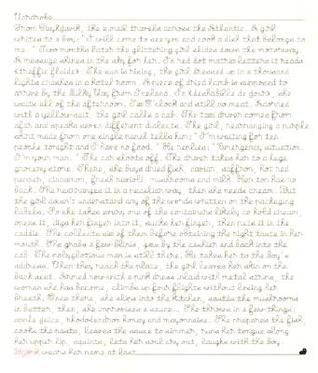 Wardrobe
From Reykjavik, the e.mail travels across the Atlantic. A girl
writes to a boy: "I will come to see you and cook a dish that belongs to
me." Two months later the glittering girl slides down the motorway.
A message shines in the sky for her. In red dot matrix letters it reads
traffic fluidet. The sun is rising, the girl dressed up in a thousand
lights crashes in a hotel room. A piece of dried lamb is annoyed to
arrive by the Milky Way from Iceland. In déshabillé de soirée, she
waits all of the afternoon. Six O'clock and still no meat. Adorned
with a yellow suit, the girl calls a cab. The taxi driver comes from
afar and speaks seven different dialects. The girl, rearranging a purple
cord made from one single pearl tells him: "I'm waiting for ten
people tonight and I have no food." He replies: "Emergency situation.
I'm your man." The cab shoots off. The driver takes her to a huge
grocery store. There, she buys dried fish, raisin, saffron, hot red
peppers, cinnamon, fresh ravioli, mushrooms and milk. Then ten kiss on
back. She rearranges it in a peculiar way, then she needs cream. But
the girl doesn't understand any of the words written on the packaging
labels. So she takes every one of the containers likely to hold cream,
opens it, dips her finger into it, sucks her finger, then puts it in the
caddie. She collects six of them before obtaining the right taste in her
mouth. She grabs a few blinis, goes by the cashier and back into the
cab. The polyglotious man is still there. He takes her to the boy's
address. When they reach the place, the girl leaves her skin on the
back seat. Adorned now with a pink dress inlaid with metal stems, the
woman she has become, climbs up four flights without losing her
breath. Once there, she slips into the kitchen, sautés the mushrooms
in butter, then, she improvises a sauce... She throws in a few things:
apple juice, rhododendron honey and mayonnaise. She prepares the fish,
cooks the pasta, leaves the sauce to simmer, runs her tongue along
her upper lip, squints, lets her soul cry out, laughs with the boy.
Björk wears her name at last.